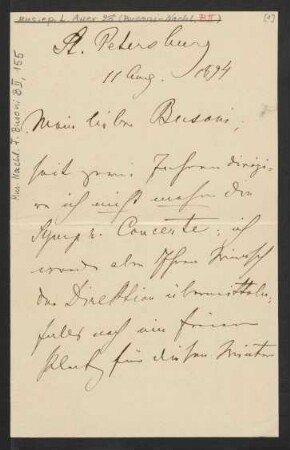 Mus.ep. L. Auer 25 (Busoni-Nachl. B II)
Mus.Nachl. F. Busoni B II, 155
St. Petersburg
11 Aug. 1894
Mein lieber Busoni,
seit zwei Jahren dirigi-
re ich nicht mehr die
Symph. Concerte; ich
werde aber Ihren Wunsch
der Direktion übermitteln,
falls noch ein freier
Platz für diesen Winter